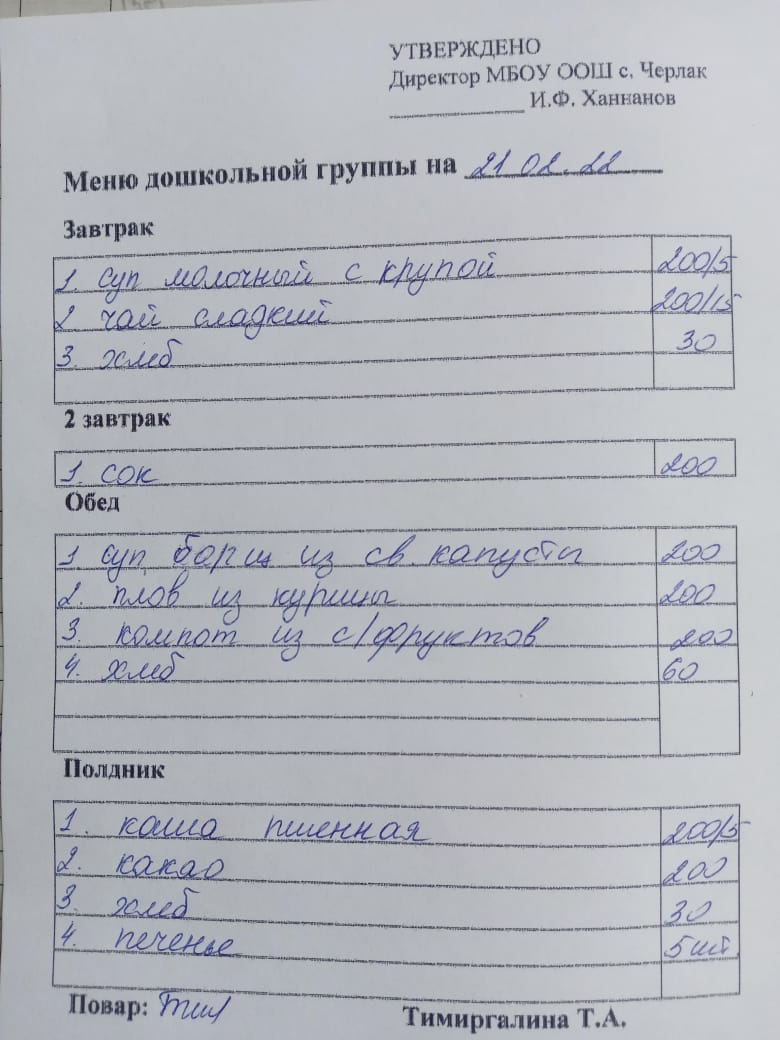 УТВЕРЖДЕНО
Директор МБОУ ООШ с. Черлак
И.Ф. Ханнанов
Меню дошкольной группы на 21 02.22
Завтрак
1. суп молочный с крупой 200/5
2 чай сладкий 200/15
3. хлеб 30
2 завтрак
1. сок 200
Обед
1 суп борщ из св. капусты 200
2. плов из курицы 200
3. компот из с/фруктов 200
4. хлеб 60
Полдник
1. каша пшенная 200/5
2. какао 200
3. хлеб 30
4. печенье 5 шт
Повар: Тимиргалина Т.А.